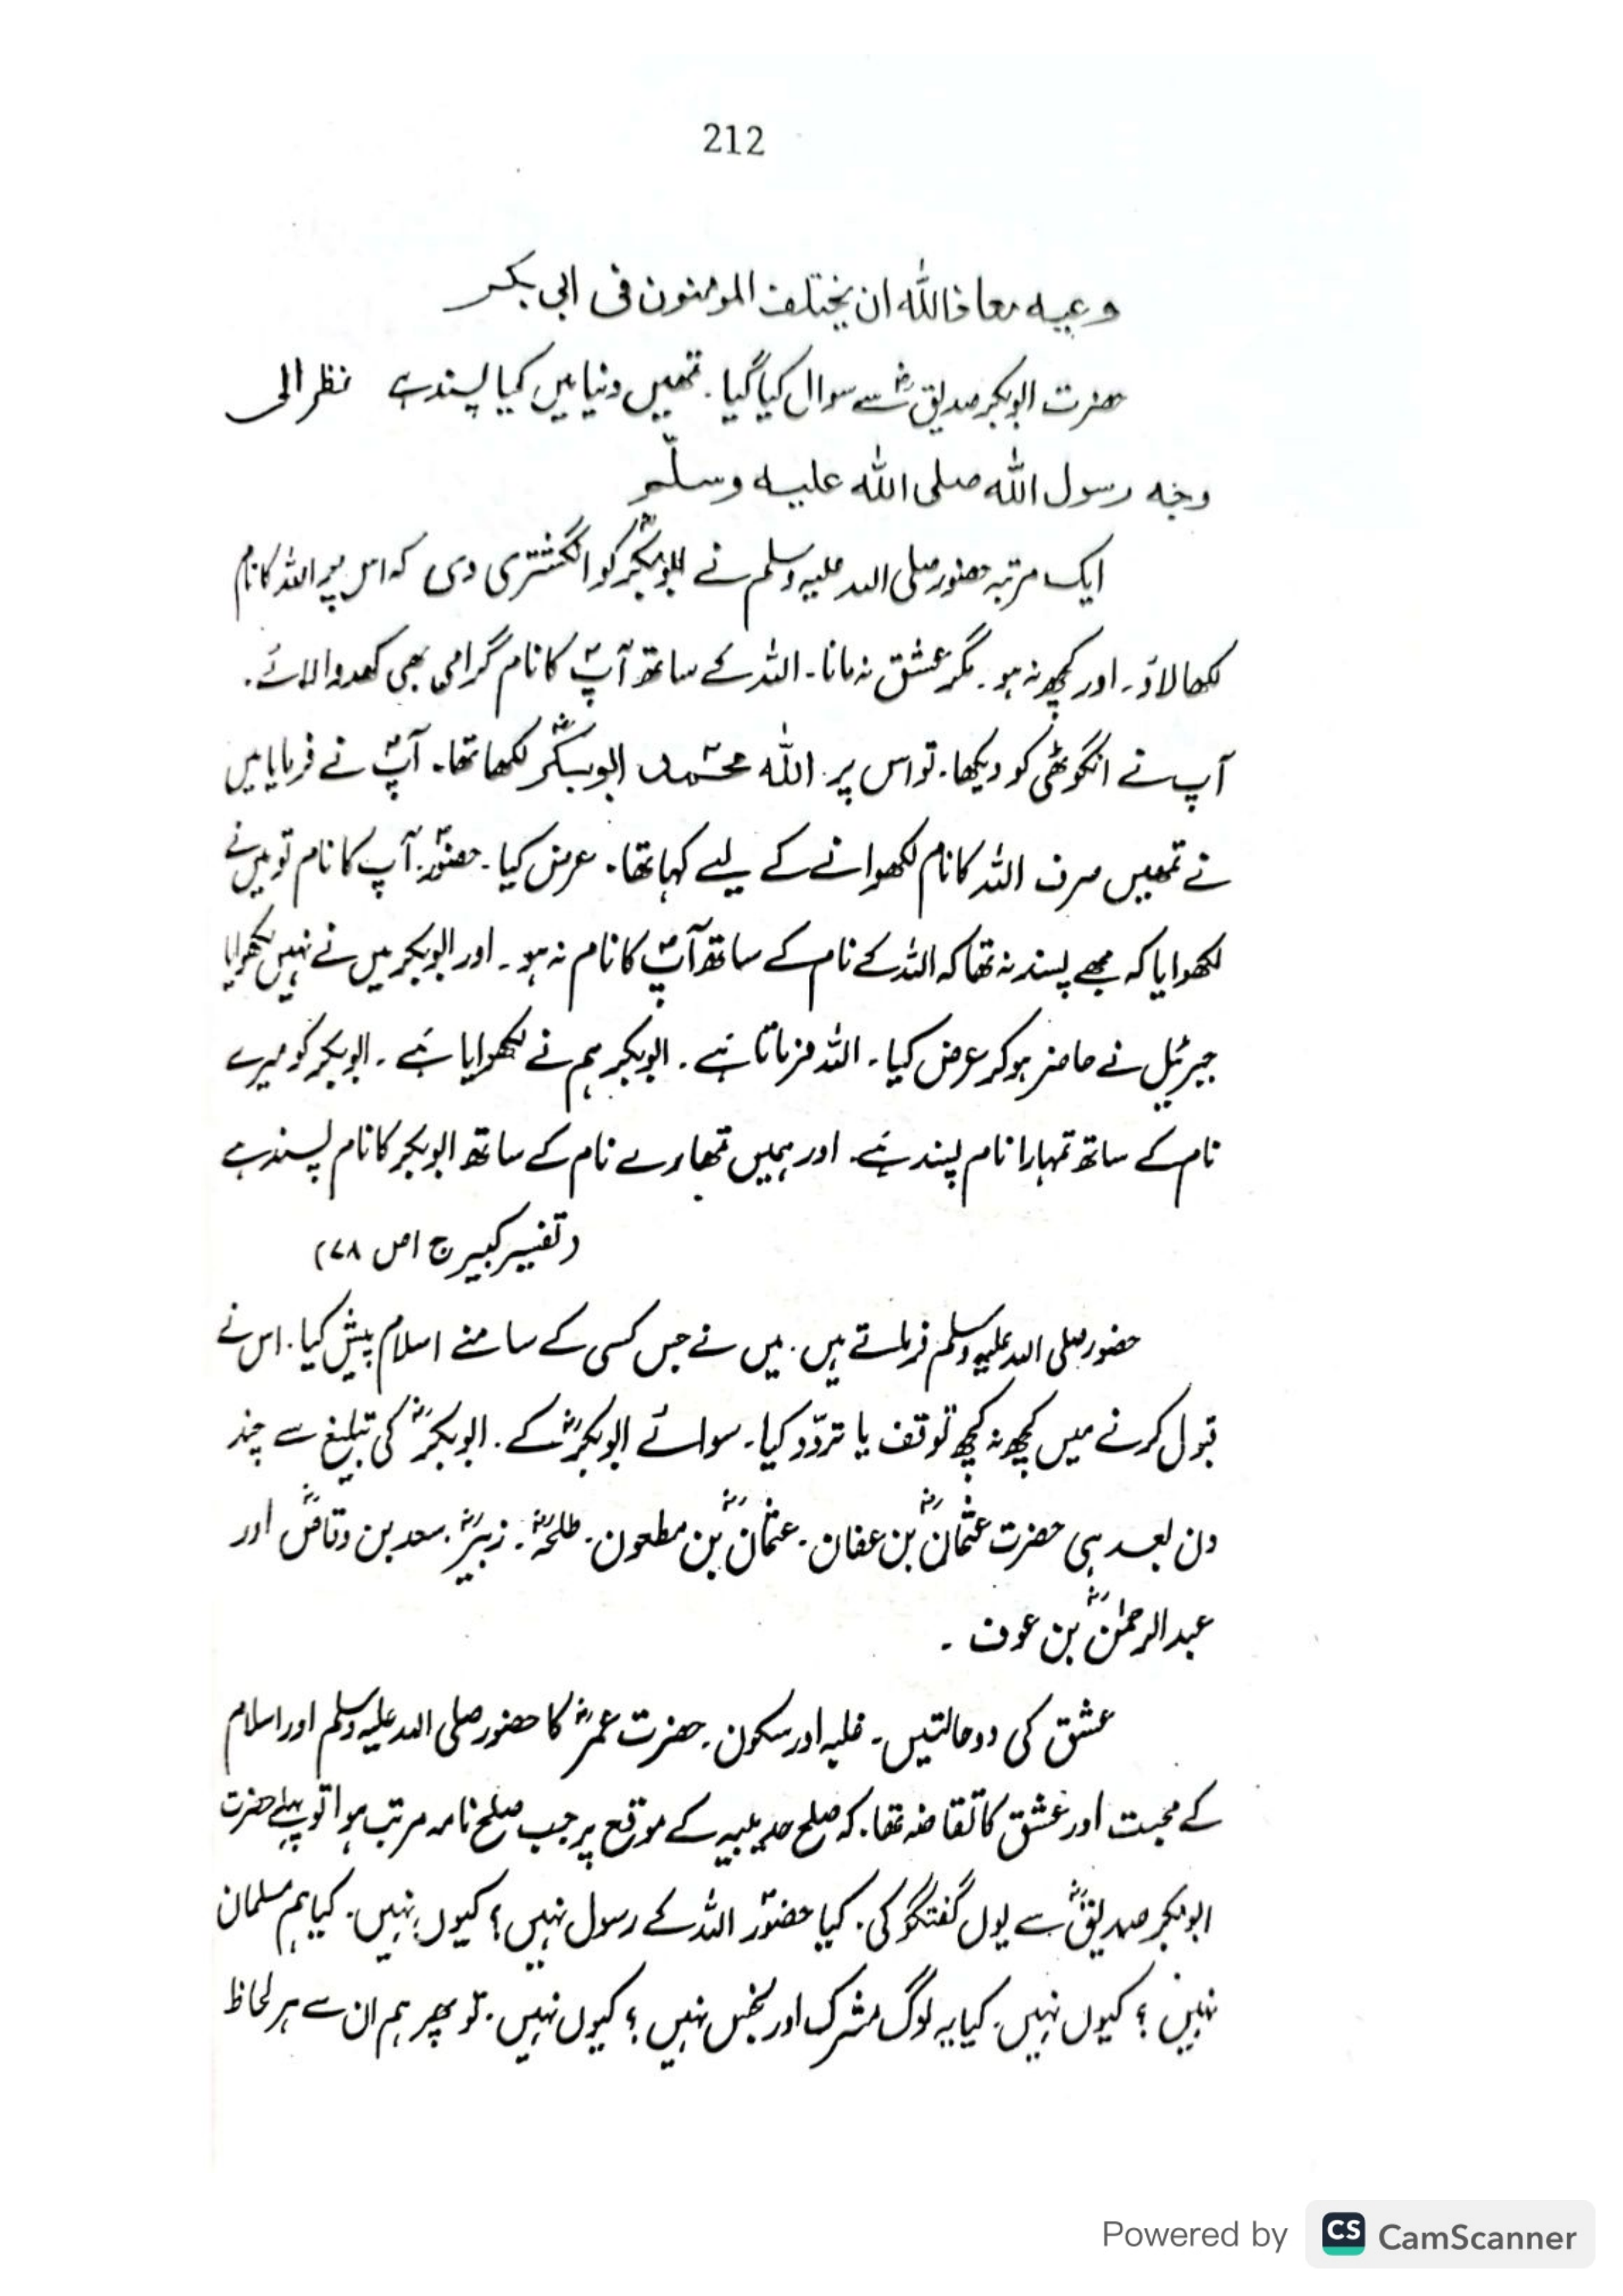 212
وعیہ معاذاللہ ان یختلف المومنون فی ابی بکر
حضرت ابوبکر صدیقؓ سے سوال کیا گیا۔ تمھیں دنیا میں کیا پسند ہے نظر الی
وجہ رسول اللہ صلی اللہ علیہ وسلّم
ایک مرتبہ حضور صلی اللہ علیہ وسلم نے ابوبکرؓ کو انگشتری دی کہ اس پر اللہ کا نام
لکھا لاؤ۔ اور کچھ نہ ہو۔ مگر عشق نہ مانا۔ اللہ کے ساتھ آپؐ کا نام گرامی بھی کھدوا لائے۔
آپ نے انگوٹھی کو دیکھا۔ تو اس پر اللہ محمّدؐ ابوبکرؓ لکھا تھا۔ آپؐ نے فرمایا میں
نے تمھیں صرف اللہ کا نام لکھوانے کے لیے کہا تھا۔ عرض کیا۔ حضورؐ۔ آپ کا نام تو میں نے
لکھوایا کہ مجھے پسند نہ تھا کہ اللہ کے نام کے ساتھ آپؐ کا نام نہ ہو۔ اور ابوبکر میں نے نہیں لکھوایا
جبرئیل نے حاضر ہو کر عرض کیا۔ اللہ فرماتا ہے۔ ابوبکر ہم نے لکھوایا ہے۔ ابوبکر کو میرے
نام کے ساتھ تمہارا نام پسند ہے۔ اور ہمیں تمھارے نام کے ساتھ ابوبکر کا نام پسند ہے
(تفسیر کبیر ج ا ص ۷۸)
حضور صلی اللہ علیہ وسلم فرماتے ہیں۔ میں نے جس کسی کے سامنے اسلام پیش کیا۔ اس نے
قبول کرنے میں کچھ نہ کچھ توقف یا تردّد کیا۔ سوائے ابوبکرؓ کے۔ ابوبکرؓ کی تبلیغ سے چند
دن بعد ہی حضرت عثمانؓ بن عفان۔ عثمانؓ بن مطعون۔ طلحہؓ۔ زبیرؓ۔ سعد بن وقاصؓ اور
عبدالرحمٰنؓ بن عوف ۔
عشق کی دو حالتیں۔ غلبہ اور سکون۔ حضرت عمرؓ کا حضور صلی اللہ علیہ وسلم اور اسلام
کے محبت اور عشق کا تقاضہ تھا۔ کہ صلح حدیبیہ کے موقع پر جب صلح نامہ مرتب ہوا تو پہلے حضرت
ابوبکر صدیقؓ سے یوں گفتگو کی۔ کیا حضورؐ اللہ کے رسول نہیں؟ کیوں نہیں۔ کیا ہم مسلمان
نہیں ؟ کیوں نہیں۔ کیا یہ لوگ مشرک اور نجس نہیں ؟ کیوں نہیں۔ تو پھر ہم ان سے ہر لحاظ
Powered by CS CamScanner